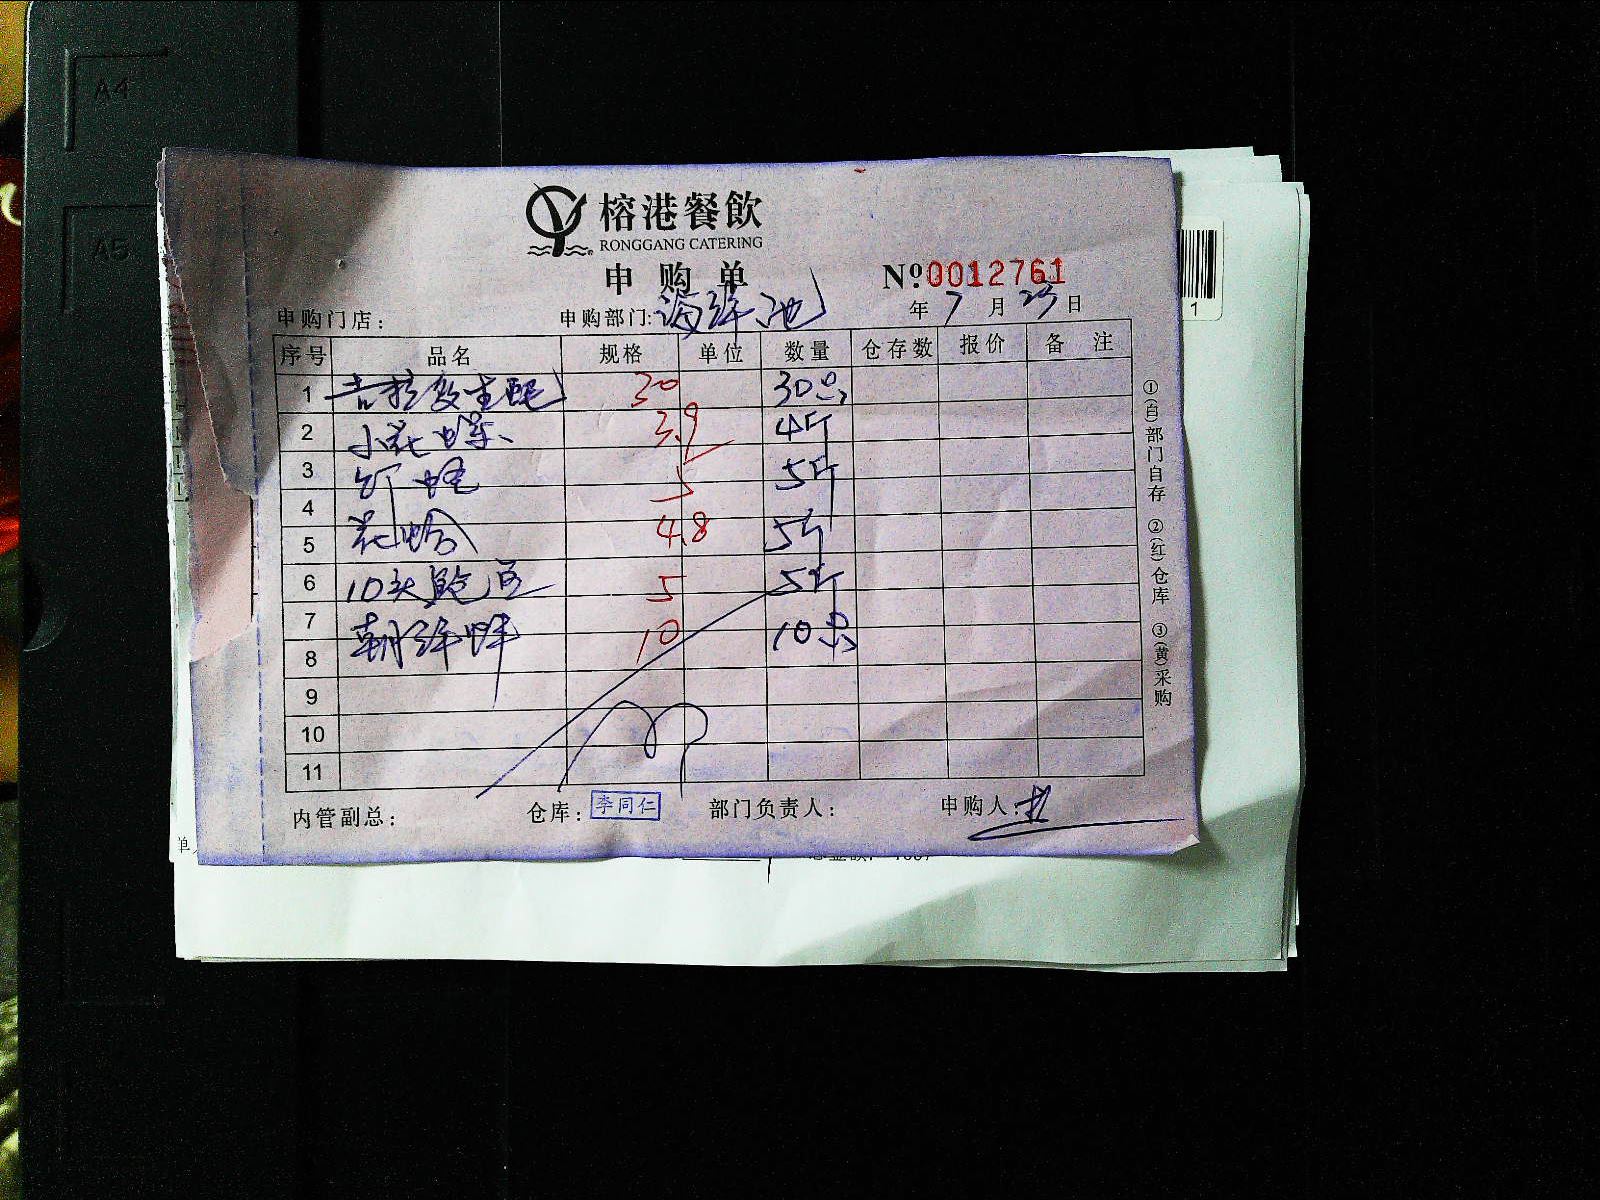 A4
A5
榕港餐飲
RONGGANG CATERING
申购单
№:0012761
申购门店:
申购部门:海洋池
年7月23日
序号 品名 规格 单位 数量 仓存数 报价 备注
1 吉拉多生蚝 30 30只
2 小花螺 3.9 4斤
3 5 5斤
4
5 花蛤 4.8 5斤
6 10头鲍鱼 5 5斤
7 10 10只
8
9
10
11
内管副总: 仓库: 李同仁 部门负责人: 申购人:
①(白)部门自存 ②(红)仓库 ③(黄)采购
1